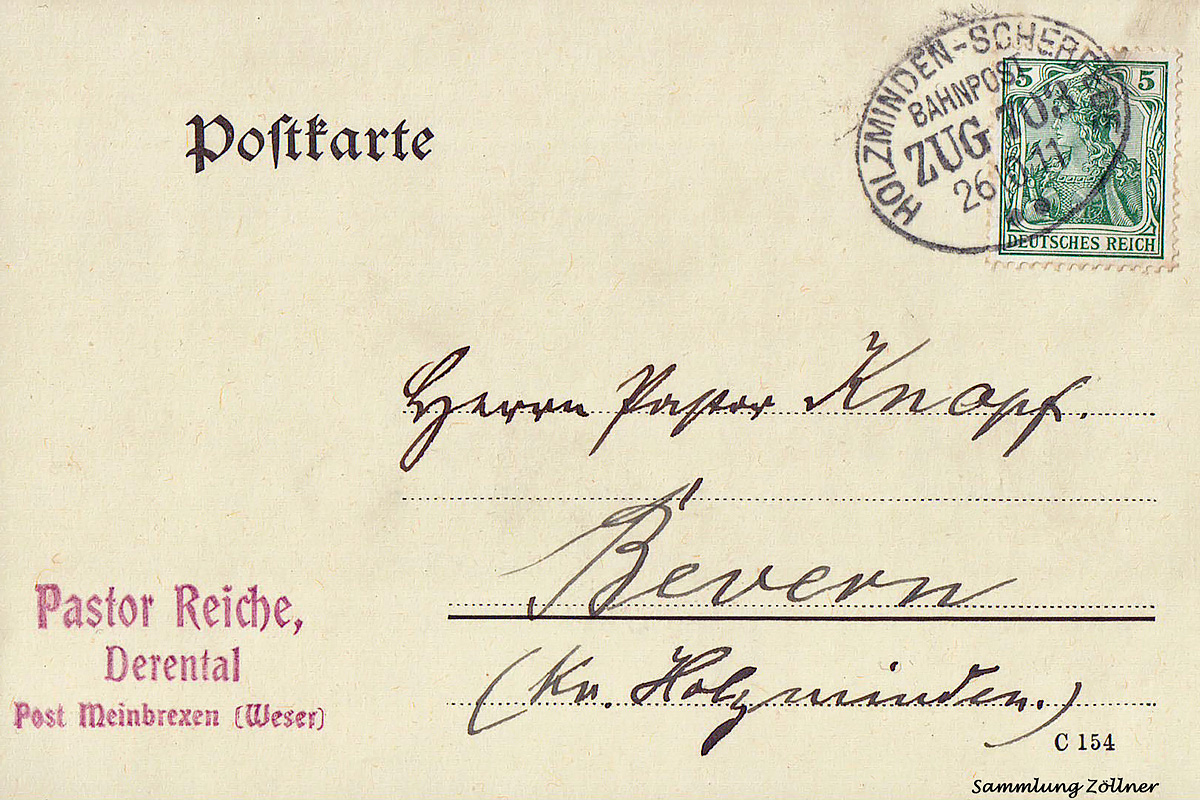 Postkarte
HOLZMINDEN-SCHERF
BAHNPOST
ZUG 703
26 3 11
5 5
DEUTSCHES REICH
Herrn Pastor Knopf.
Bevern
(Kr. Holzminden.)
Pastor Reiche,
Derental
Post Meinbrexen (Weser)
C 154
Sammlung Zöllner